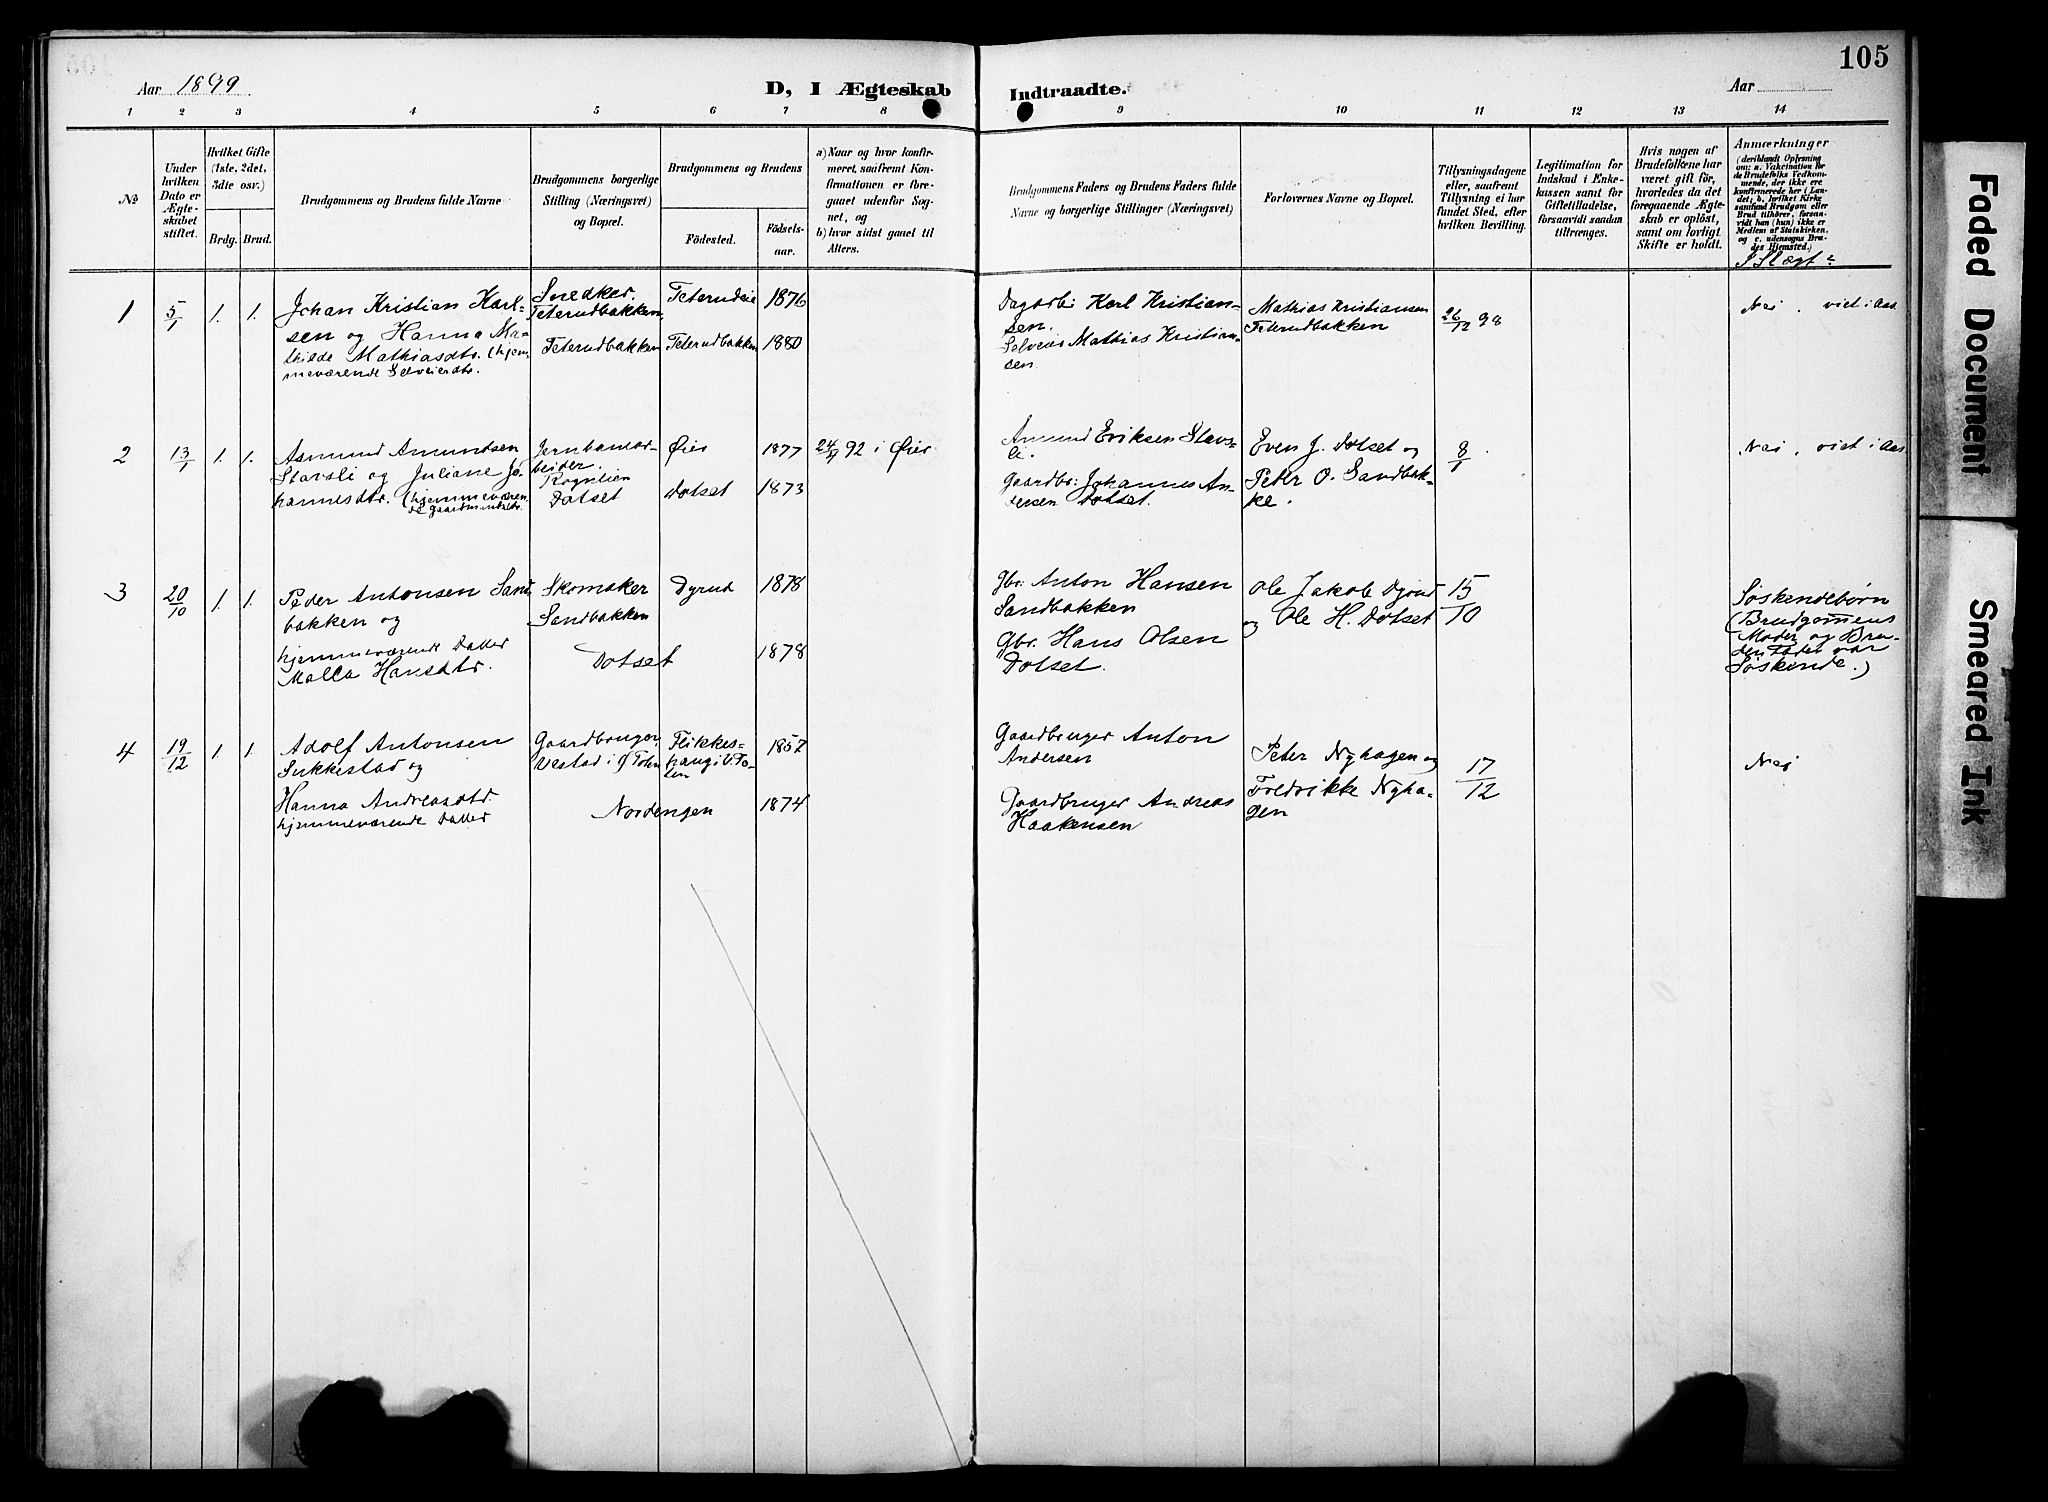 105
Aar 1899
D, I Ægteskab Indtraadte.
Aar
1 2 3 4 5 6 7 8 9 10 11 12 13 14
No
Under hvilken Dato er Ægteskabet stiftet.
Hvilket Gifte (1ste, 2det, 3dte osv.)
Brdg. Brud.
Brudgommens og Brudens fulde Navne
Brudgommens borgerlige Stilling (Næringsvei) og Bopæl.
Brudgommens og Brudens
Fødested.
Fødselsaar.
a) Naar og hvor konfirmeret, saafremt Konfirmationen er foregaaet udenfor Sognet, og
b) hvor sidst gaaet til Alters.
Brudgommens Faders og Brudens Faders fulde Navne og borgerlige Stillinger (Næringsvei)
Forlovernes Navne og Bopæl.
Tillysningsdagene eller, saafremt Tillysning ei har fundet Sted, efter hvilken Bevilling.
Legitimation for Indskud i Enkekassen samt for Giftetilladelse, forsaavidt saadan tiltrænges.
Hvis nogen af Brudefolkene har været gift før, hvorledes da det foregaaende Ægteskab er opløst, samt om lovligt Skifte er holdt.
Anmærkninger
(deriblandt Oplysning om: a. Vakcination for de Brudefolks Vedkommende, der ikke ere konfirmerede her i Landet; b. hvilket Kirkesamfund Brudgom eller Brud tilhører, forsaavidt han (hun) ikke er Medlem af Statskirken, og c. udensogns Brudes Hjemsted.)
I Slægt?
1
5/1
1. 1.
Johan Kristian Karl-
sen og Hanna Ma-
thilde Mathiasdtr. (hjem-
meværende Selveierdtr.
Snedker.
Teterudbakken
Teterudbakken
Teterudeie
Teterudbakken
1876
1880
Dagarb: Karl Kristian-
sen.
Selveier Mathias Kristian-
sen.
Mathias Kristiansen
Teterudbakken
26/12 98
Nei. viet i Aas.
2
13/1
1. 1.
Asmund Amundsen
Stavsli og Juliane Jo-
hannesdtr. (hjemmeværen-
de gaardmandsdtr.
Jernbanear-
beider.
Rognlien
Dotset
Øier
Dotset
1877
1873
24/9 92 i Øier
Amund Eriksen Stavs-
li.
Gaardbr: Johannes An-
dersen Dotset.
Even J. Dotset og
Peter O. Sandbak-
ke.
8/1.
Nei. viet i Aas
3
20/10
1. 1.
Peder Antonsen Sand-
bakken og
hjemmeværende Datter
Malla Hansdtr.
Skomaker
Sandbakken
Dotset
Dyrud
1878
1878
Gbr. Anton Hansen
Sandbakken
Gbr. Hans Olsen
Dotset.
Ole Jakob Dyrud
og Ole H. Dotset
15/10
Søskendebørn
(Brudgomens
Moder og Bru-
dens Fader var
Søskende.)
4
19/12
1. 1.
Adolf Antonsen
Sukkestad og
Hanna Andreasdtr.
hjemmeværende Datter
Gaardbruger,
Vestad i Ø Toten
Nordengen
Flikkes-
haug i V. To-
ten
1857
1874
Gaardbruger Anton
Andersen
Gaardbruger Andreas
Haakensen
Peter Nyhagen og
Fredrikke Nyha-
gen
17/12
Nei
Faded Document
Smeared Ink